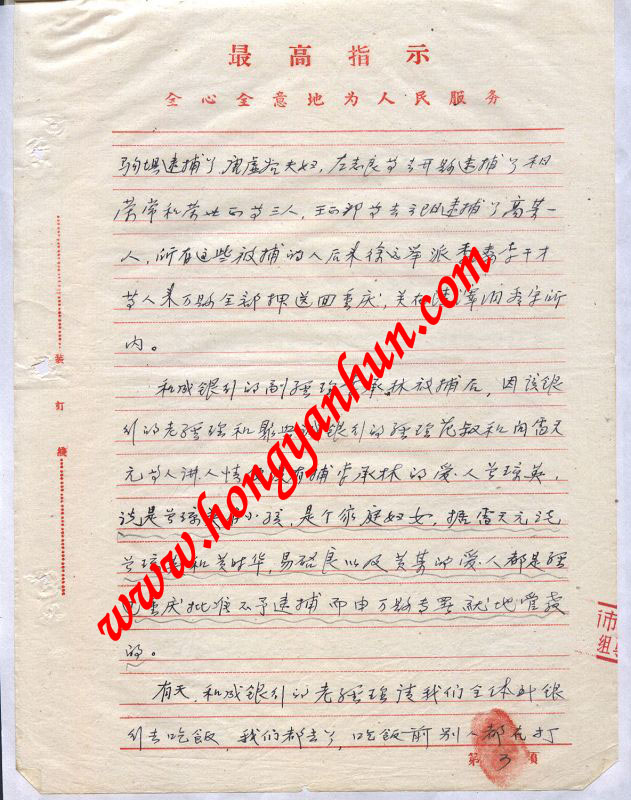 最高指示
全心全意地为人民服务
逮捕了唐虚谷夫妇，左志良等去开县逮捕了和
荣常和荣世西等三人，王西邦等去记逮捕了高某一
人，所有这些被捕的人后来徐远举派李干才
等人来万县全部押送回重庆，关在看守所
内。
和成银行的副经理李承林被捕后，因该银
行的老经理和聚兴诚银行的经理范叔和向雷天
元等人讲人情捕李承林的爱人兰琼英，
说是小孩，是个家庭妇女，据雷天元说
兰琼英和黄时华，易启良以及黄某的爱人都是经
重庆批准不予逮捕而由万县专署就地管教
的。
有天，和成银行的老经理请我们全体到银
行去吃饭，我们都去了，吃饭前别人都在打
第3页
装
订
线
市
组
www.hongyanhun.com